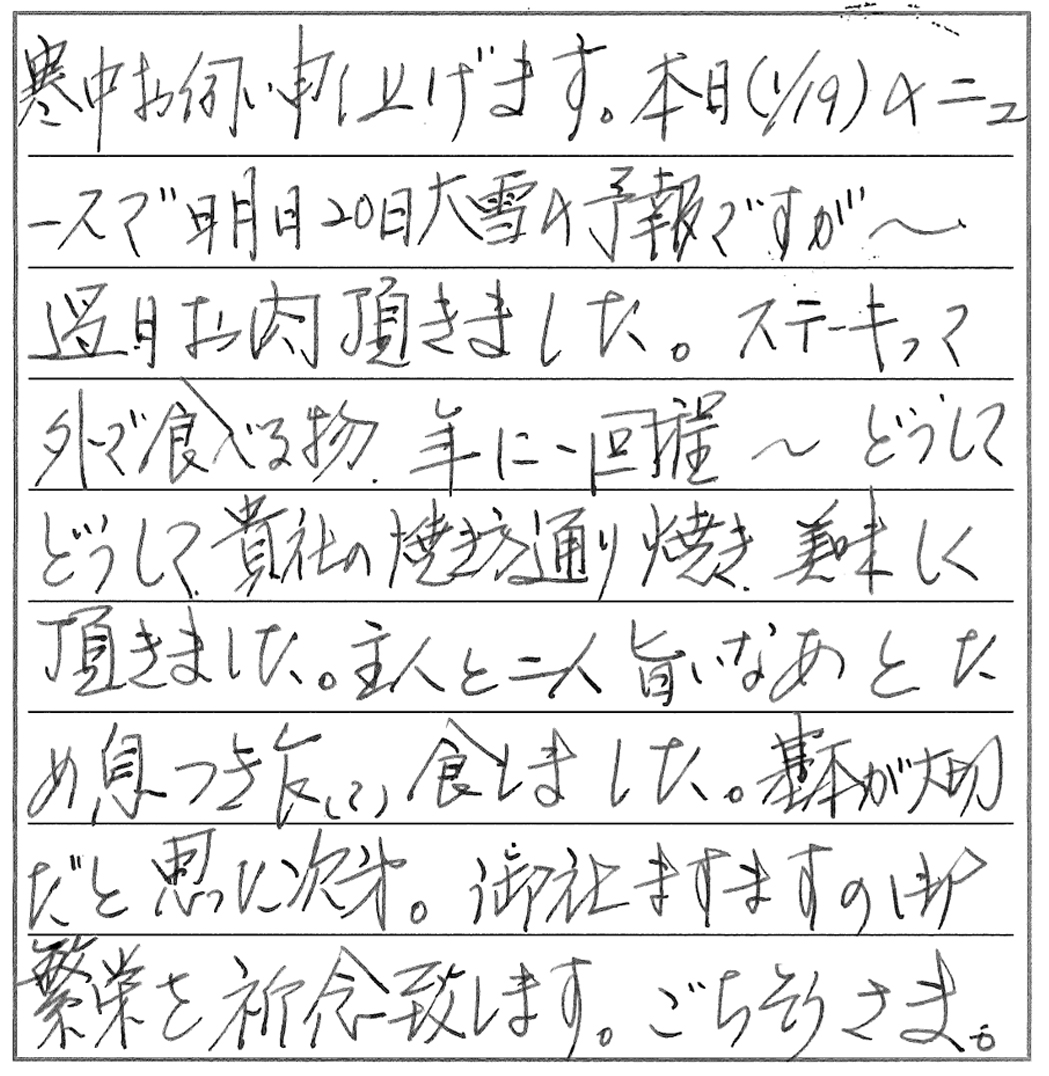 寒中お伺い申し上げます。本日(1/19)のニュ
ースで明日20日大雪の予報ですが〜
過日お肉頂きました。ステーキって
外で食べる物、年に一回程〜どうして
どうして、貴社の焼き方通り焼き、美味しく
頂きました。主人と二人旨いなあとた
め息つき乍ら(?)食しました。基本が大切
だと思った次第。御社ますますの御
繁栄を祈念致します。ごちそうさま。